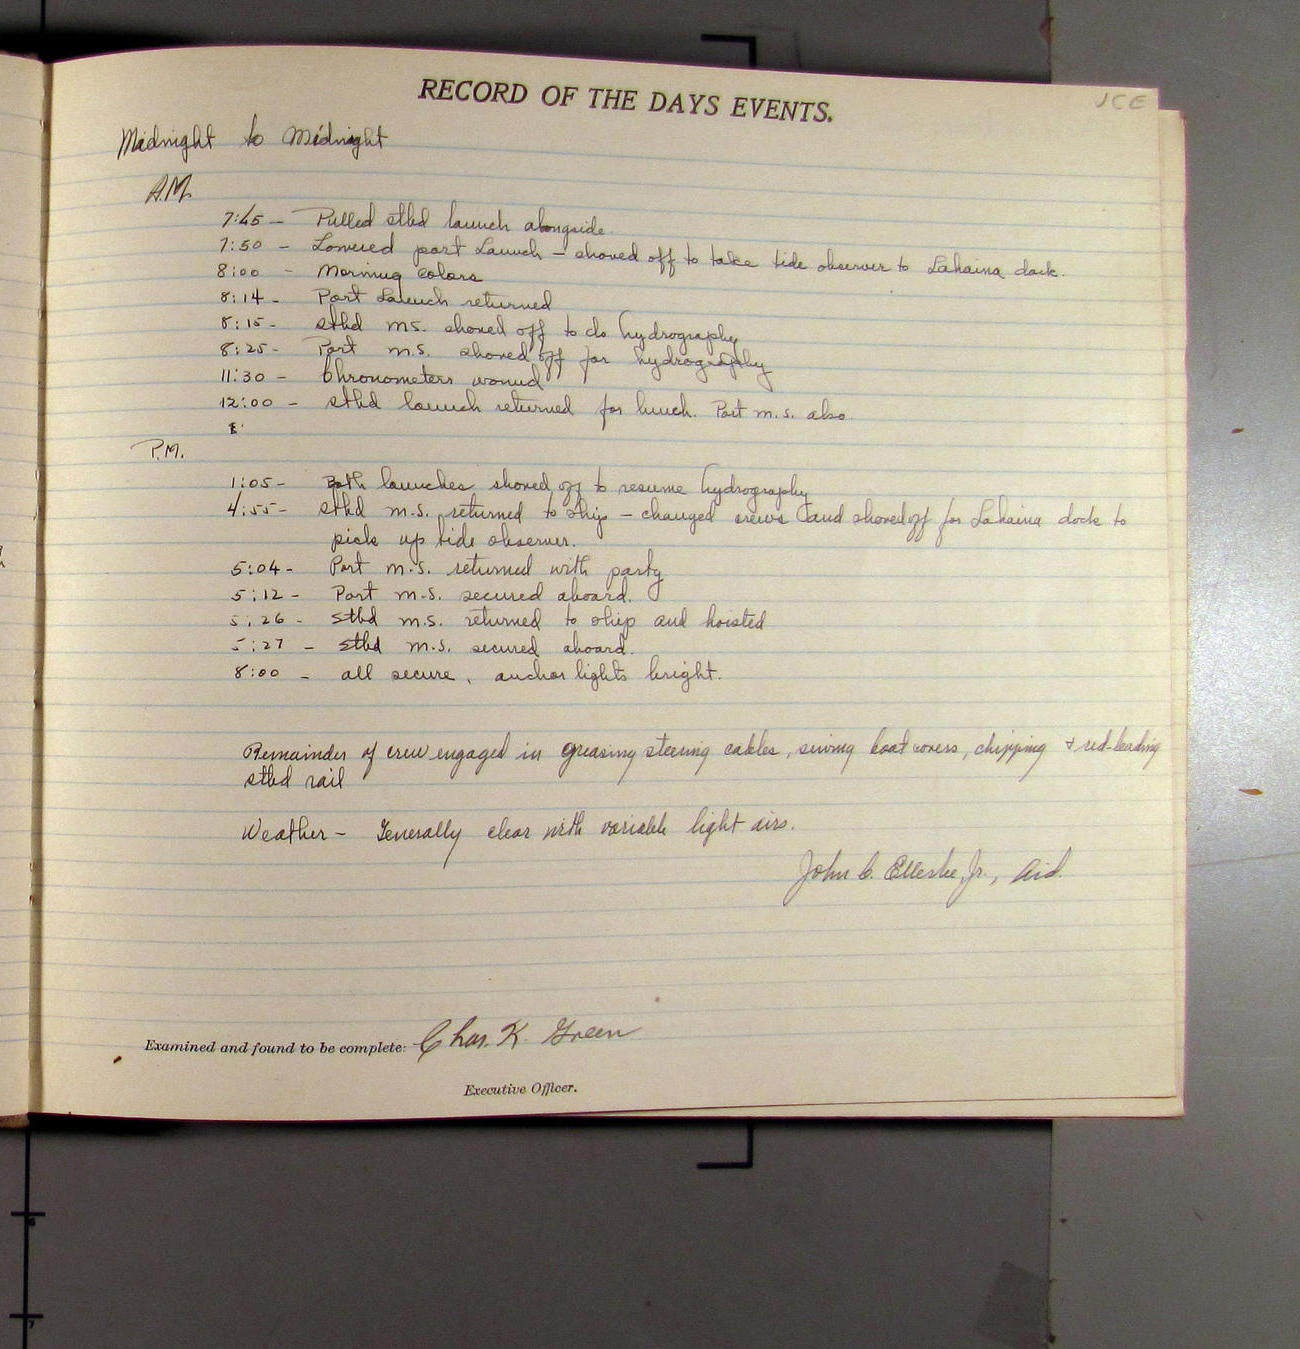 JCE
RECORD OF THE DAYS EVENTS.
Midnight to Midnight
A.M.
7:45 - Pulled stbd launch alongside.
7:50 - Lowered port Launch - shoved off to take tide observer to Lahaina dock.
8:00 - Morning colors
8:14 - Port Launch returned
8:15 - stbd m.s. shoved off to do hydrography
8:25 - Port m.s. shoved off for hydrography
11:30 - Chronometers wound
12:00 - stbd launch returned for lunch. Port m.s. also
P.M.
1:05 - Both launches shoved off to resume hydrography
4:55 - stbd m.s. returned to ship - changed crews and shoved off for Lahaina dock to
pick up tide observer.
5:04 - Port m.s. returned with party
5:12 - Port m.s. secured aboard.
5:26 - stbd m.s. returned to ship and hoisted
5:27 - stbd m.s. secured aboard.
8:00 - all secure, anchor lights bright.
Remainder of crew engaged in greasing steering cables, sewing boat covers, chipping + red-leading
stbd rail
Weather - Generally clear with variable light airs.
John C. Ellerbe, Jr., Aid.
Examined and found to be complete: Chas. K. Green
Executive Officer.
6
7